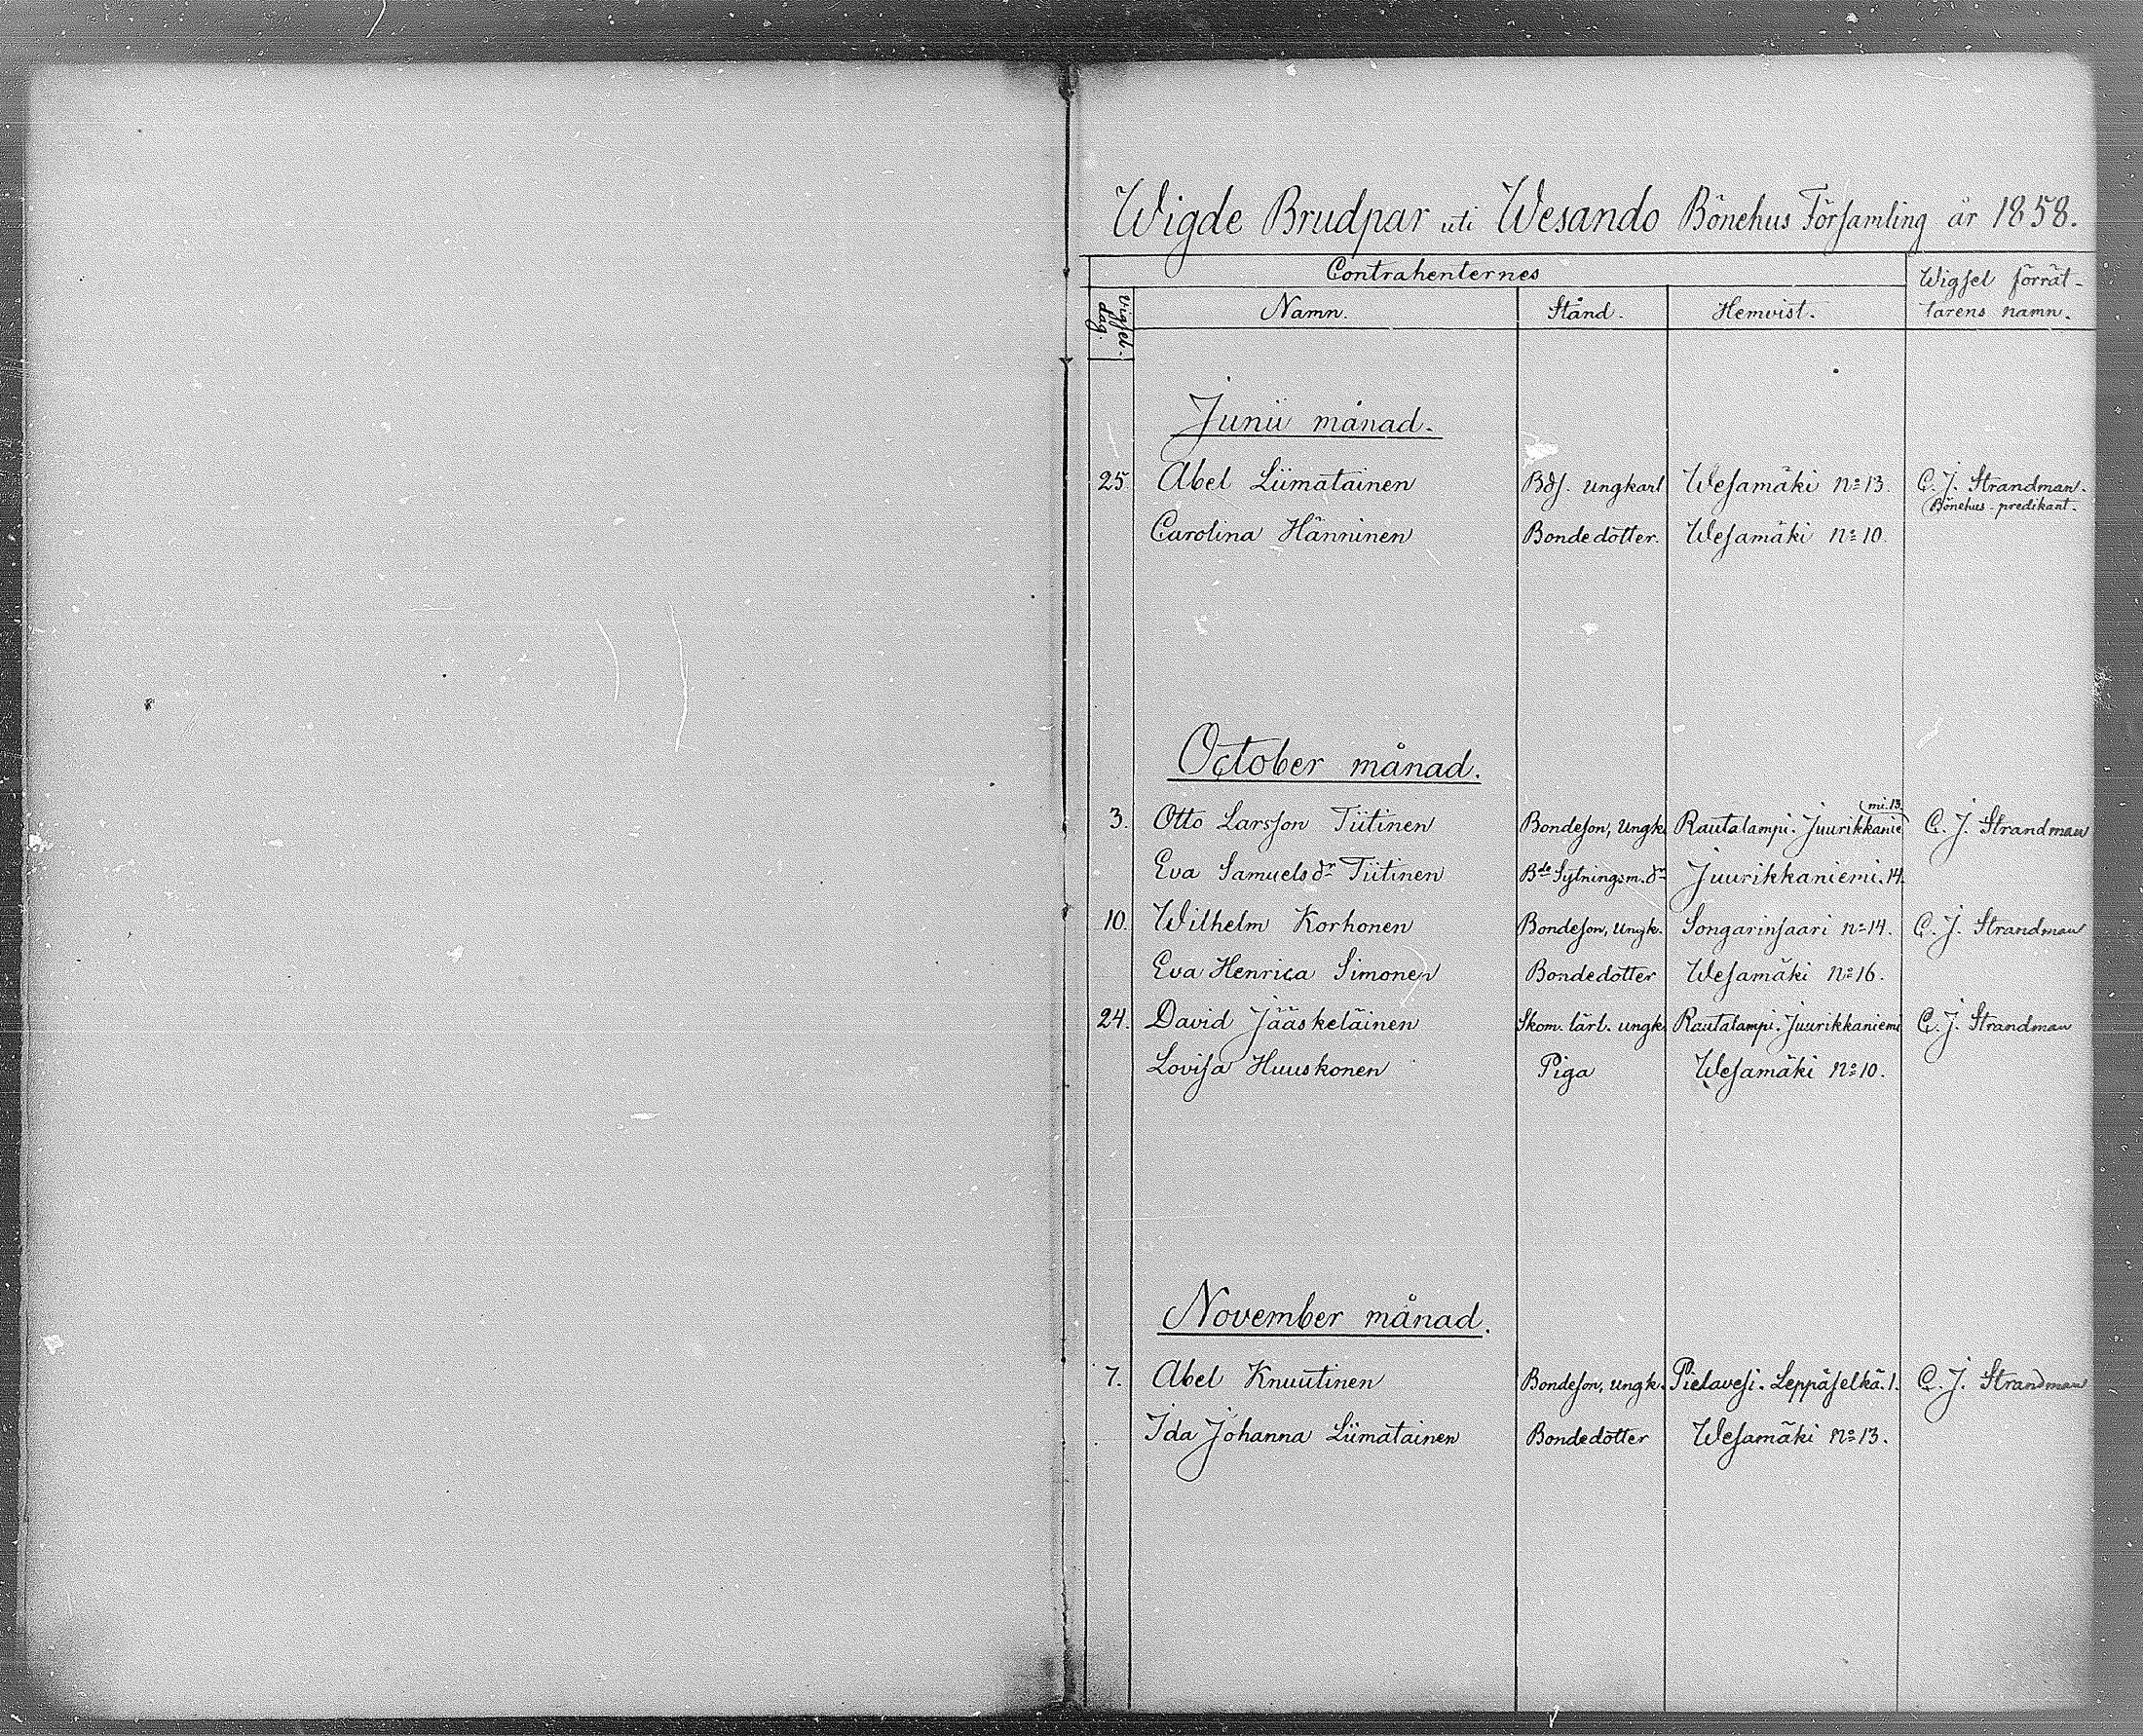 Wigde Brudpar uti Wesando Bönehus Församling år 1858.
Contrahenternes
Vigsel-
dag.
Namn.
Stånd.
Hemvist.
Wigsel förrät-
tarens namn.
Junii månad.
25. Abel Liimatainen Bds. ungkarl Wesamäki No 13. C. J. Strandman.
Bönehus-predikant.
Carolina Hänninen Bondedotter. Wesamäki No 10.
October månad.
3. Otto Larsson Tiitinen Bondeson, Ungk. Rautalampi. Juurikkanie C. J. Strandman
mi. 13.
Eva Samuelsdr Tiitinen Bde Sytningsm. dr Juurikkaniemi. 14.
10. Wilhelm Korhonen Bondeson, Ungk. Songarinsaari No 14. C. J. Strandman
Eva Henrica Simonen Bondedotter Wesamäki No 16.
24. David Jääskeläinen Skom. lärl. ungk. Rautalampi. Juurikkaniemi C. J. Strandman
Lovisa Huuskonen Piga Wesamäki No 10.
November månad.
7. Abel Knuutinen Bondeson, ungk. Pielavesi. Leppäselkä. 1. C. J. Strandman
Ida Johanna Liimatainen Bondedotter Wesamäki No 13.